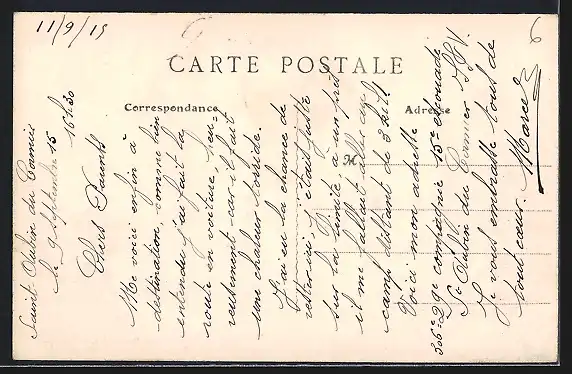 11/9/15
6
CARTE POSTALE
Correspondance
Adresse
M
Saint Aubin du Cormier
le 9 septembre 15
16h30
Chers Parents
Me voici enfin à
destination comme bien
entendu j'ai fait la
route en voiture, heu=
reusement car il fait
une chaleur torride.
J'ai eu la chance de
rester ici, c'était juste
sur la limite, à un près
il me fallait aller au
camp distant de 3 kil!
Voici mon adresse
2ge compagnie 15e escouade
St Aubin du Cormier I&V.
Je vous embrasse tous de
tout cœur. Marcel